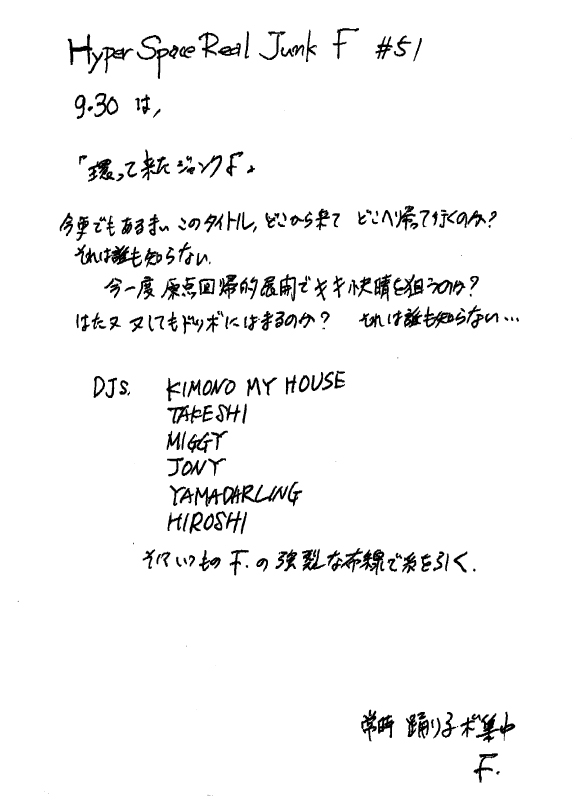 Hyper Space Real Junk F #51
9.30 は,
「環って来たジャンクF」
今更でもあるまい このタイトル, どこから来て どこへ帰って行くのか?
それは誰も知らない.
今一度 原点回帰的展開でキキ快晴を狙うのか?
はたヌ 又してもドツボにはまるのか? それは誰も知らない…
DJs. KIMONO MY HOUSE
TAKESHI
MIGGY
JONY
YAMADARLING
HIROSHI
そしていつもの F. の 強烈な布線で糸を引く.
常時 踊り子ボ集中
F.